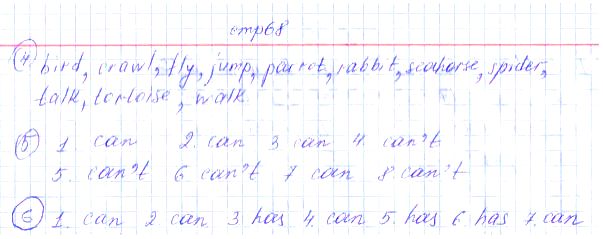 стр68
4 bird, crawl, fly, jump, parrot, rabbit, seahorse, spider,
talk, tortoise, walk.
5 1. can 2. can 3 can 4. can't
5. can't 6 can't 7 can 8. can't
6 1. can 2 can 3 has 4. can 5. has 6. has 7. can